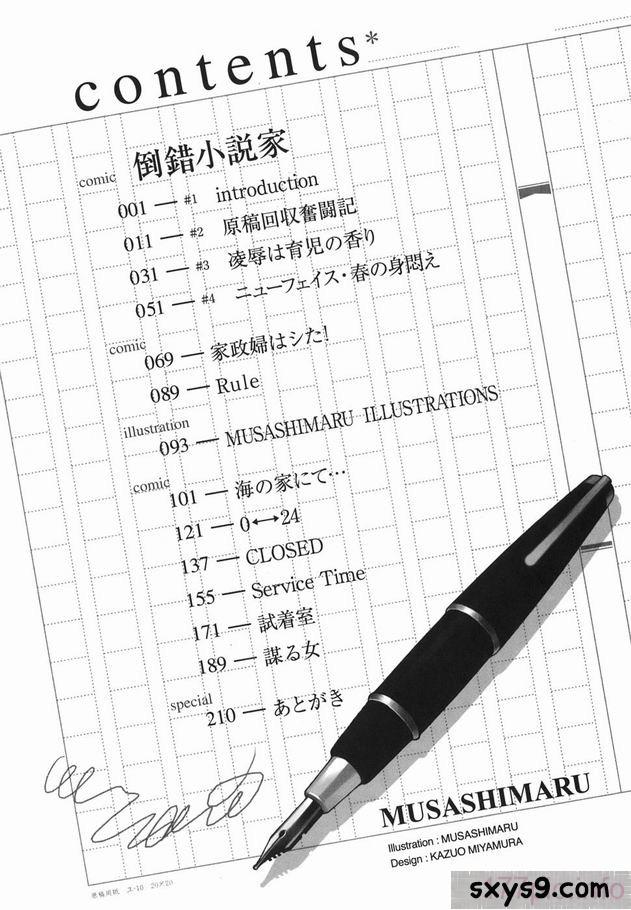 contents*
comic 倒錯小説家
001 — #1 introduction
011 — #2 原稿回収奮闘記
031 — #3 凌辱は育児の香り
051 — #4 ニューフェイス・春の身悶え
comic
069 — 家政婦はシた!
089 — Rule
illustration
093 — MUSASHIMARU ILLUSTRATIONS
comic
101 — 海の家にて…
121 — 0↔24
137 — CLOSED
155 — Service Time
171 — 試着室
189 — 謀る女
special
210 — あとがき
MUSASHIMARU
Illustration : MUSASHIMARU
Design : KAZUO MIYAMURA
原稿用紙 ユ-10 20×20
sxys9.com